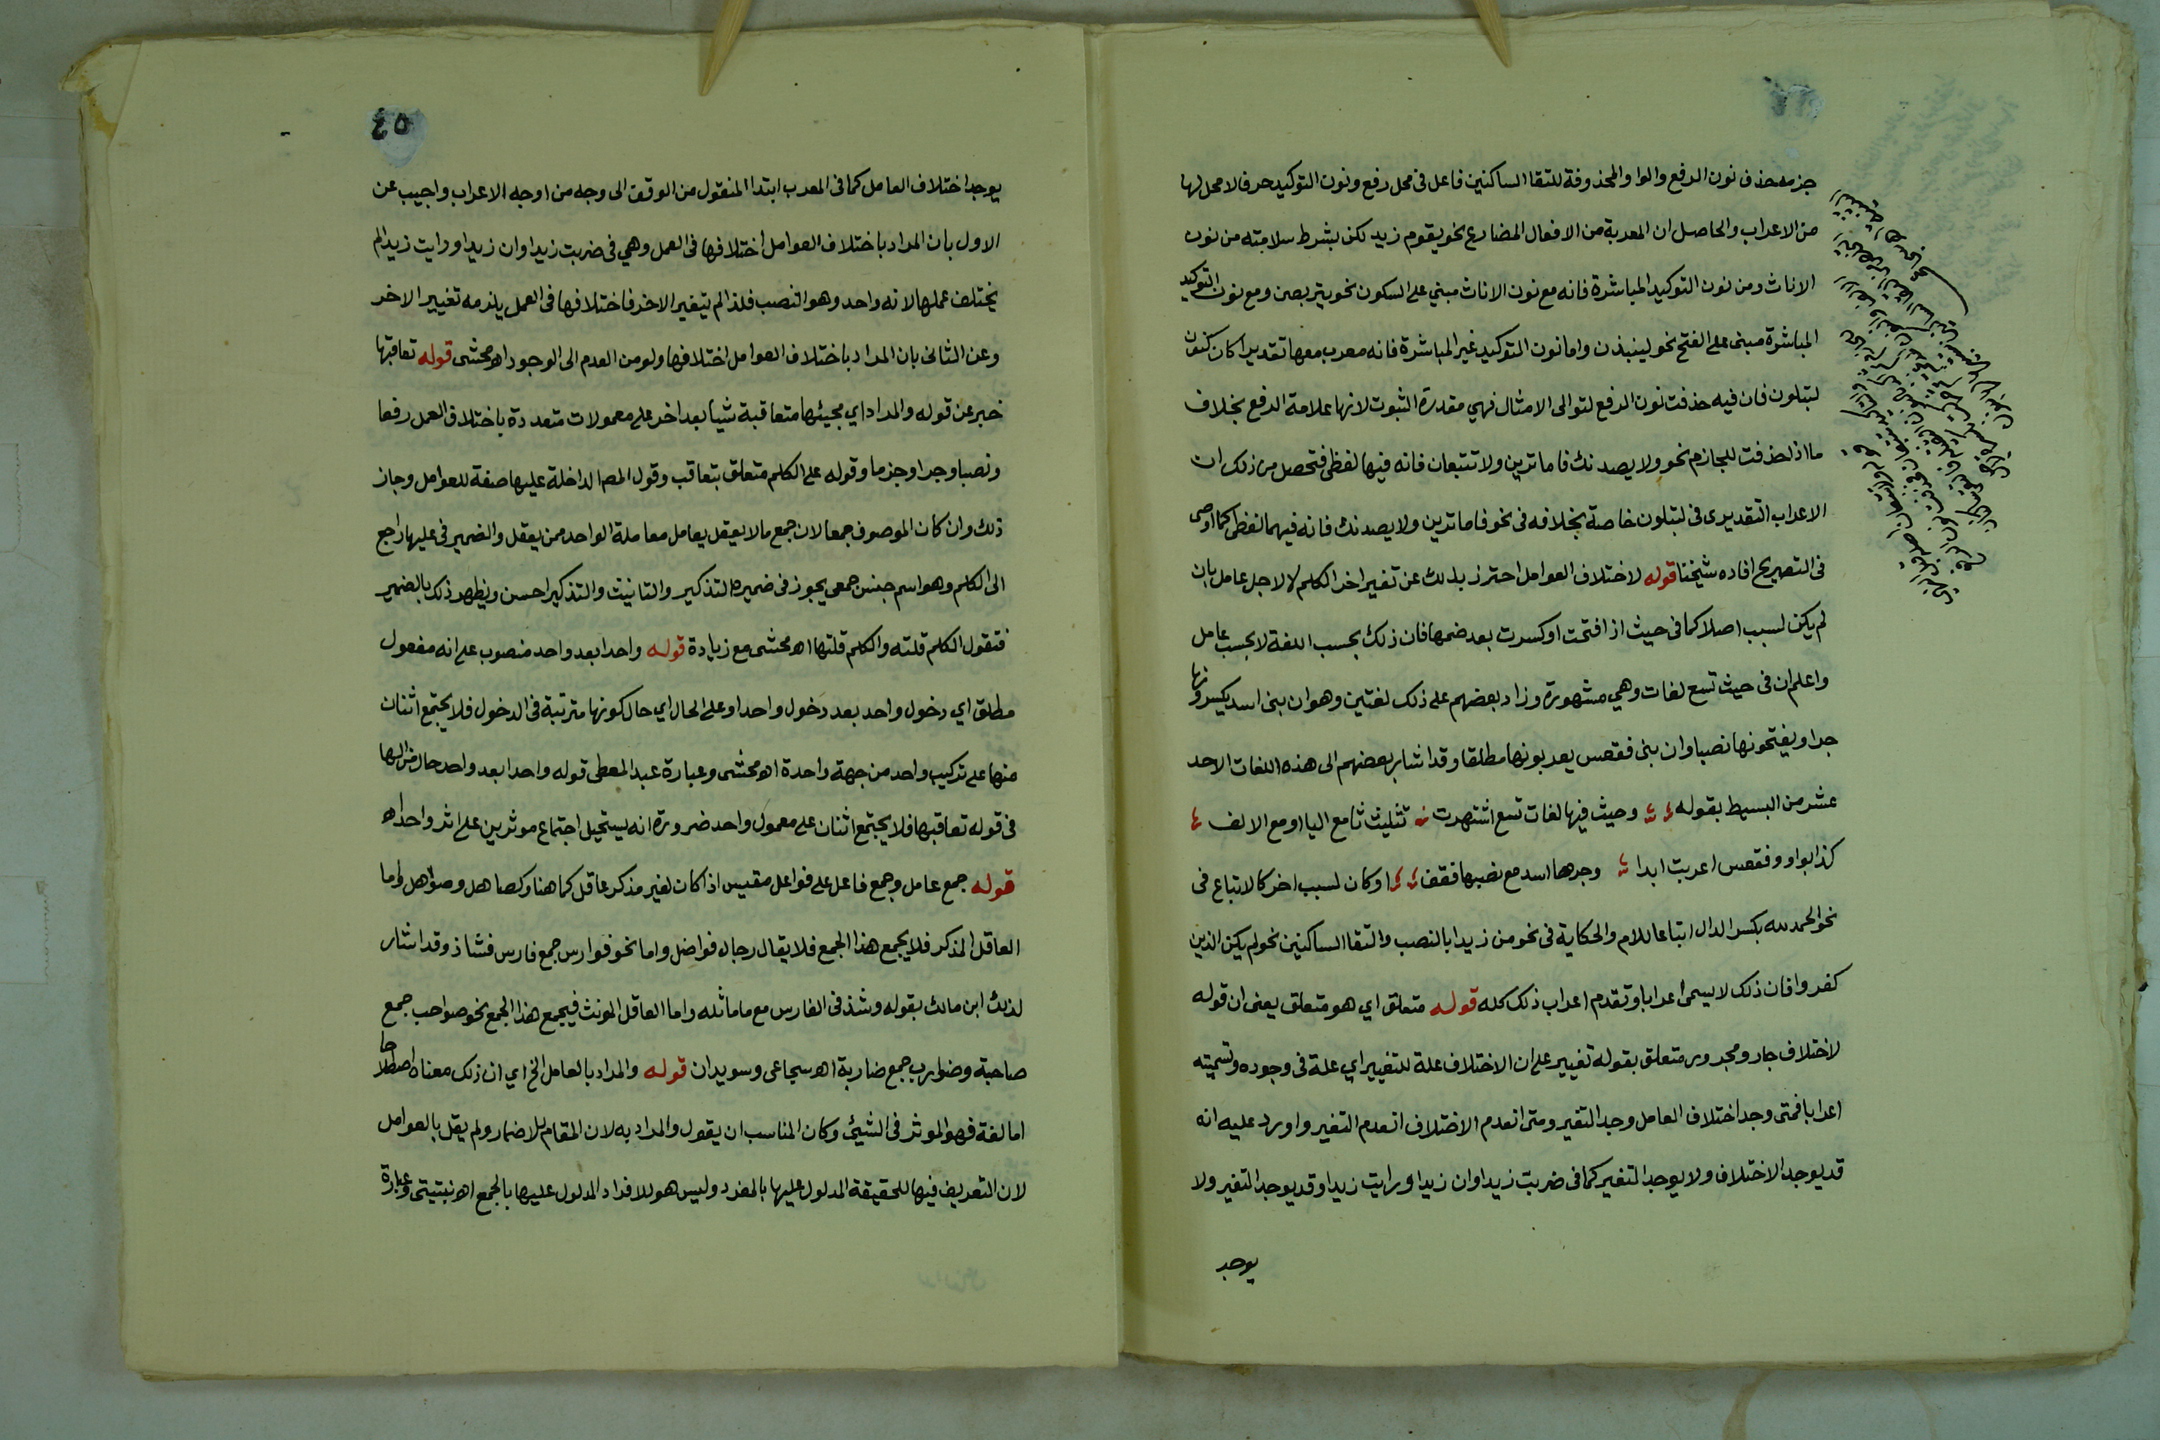 جزمه حذف نون الرفع والواو المحذوفة للتقا الساكنين فاعل في محل رفع ونون التوكيد حرف لا محل لها
من الاعراب والحاصل ان المعربة من الافعال المضارع نحو يقوم زيد لكن بشرط سلامته من نون
الاناث ومن نون التوكيد المباشرة فانه مع نون الاناث مبني على السكون نحو يتربصن ومع نون التوكيد
المباشرة مبني على الفتح نحو لينبذن واما نون التوكيد غير المباشرة فانه معرب معها تقديرا كان كنون
لتبلون فان فيه حذفت نون الرفع لتوالي الامثال فهي مقدرة الثبوت لانها علامة الرفع بخلاف
ما اذا حذفت للجازم نحو ولا يصدنك فاما ترين ولا تتبعان فانه فيها لفظي فتحصل من ذلك ان
الاعراب التقديري في لتبلون خاصة بخلافه في نحو فاما ترين ولا يصدنك فانه فيهما لفظي كما اوضحى
في التصريح افاده شيخنا قوله لاختلاف العوامل احترز بذلك عن تغير اخر الكلم لا لاجل عامل بان
لم يكن لسبب اصلا كما في حيث اذا فتحت او كسرت بعد ضمها فان ذلك بحسب اللغة لا بحسب عامل
واعلم ان في حيث تسع لغات وهي مشهورة وزاد بعضهم على ذلك لغتين وهو ان بني اسد يكسرونها
جرا ويفتحونها نصبا وان بني فقعس يعربونها مطلقا وقد اشار بعضهم الى هذه اللغات الاحد
عشر من البسيط بقوله وحيث فيها لغات تسع اشتهرت تثليث ثا مع اليا او مع الالف
كذا بواو وفقعس اعربت ابدا وجرها اسد مع نصبها فقف او كان لسبب اخر كالاتباع في
نحو الحمد لله بكسر الدال اتباعا للام والحكاية في نحو من زيدا بالنصب والتقا الساكنين نحو لم يكن الذين
كفروا فان ذلك لا يسمى اعرابا وتقدم اعراب ذلك كله قوله متعلق اي هو متعلق يعني ان قوله
لاختلاف جار ومجرور متعلق بقوله تغيير على ان الاختلاف علة للتغيير اي علة في وجوده وتسميته
اعرابا فمتى وجد اختلاف العامل وجد التغير ومتى انعدم الاختلاف انعدم التغير واورد عليه انه
قد يوجد الاختلاف ولا يوجد التغير كما في ضربت زيدا وان زيدا ورايت زيدا وقد يوجد التغير ولا
يوجد
٤٥
يوجد اختلاف العامل كما في المعرب ابتدا المنقول من الوقف الى وجه من اوجه الاعراب واجيب عن
الاول بان المراد باختلاف العوامل اختلافها في العمل وهي في ضربت زيدا وان زيدا ورايت زيدا لم
يختلف عملها لانه واحد وهو النصب فلذا لم يتغير الاخر فاختلافها في العمل يلزمه تغيير الاخر
وعن الثاني بان المراد باختلاف العوامل اختلافها ولو من العدم الى الوجود اه محشى قوله تعاقبها
خبر عن قوله والمراد اي مجيئها متعاقبة شيا بعد اخر على معمولات متعددة باختلاف العمل رفعا
ونصبا وجرا وجزما وقوله على الكلم متعلق بتعاقب وقول المص الداخلة عليها صفة للعوامل وجاز
ذلك وان كان الموصوف جمعا لان جمع ما لا يعقل يعامل معاملة الواحد ممن يعقل والضمير في عليها راجع
الى الكلم وهو اسم جنس جمعي يجوز في ضميره التذكير والتانيث والتذكير احسن ويظهر ذلك بالضمير
فتقول الكلم قلته والكلم قلتها اه محشى مع زيادة قوله واحدا بعد واحد منصوب على انه مفعول
مطلق اي دخول واحد بعد دخول واحد او على الحال اي حال كونها مترتبة في الدخول فلا يجتمع اثنان
منها على تركيب واحد من جهة واحدة اه محشى وعبارة عبد المعطي قوله واحدا بعد واحد حال من الها
في قوله تعاقبها فلا يجتمع اثنان على معمول واحد ضرورة انه يستحيل اجتماع موثرين على اثر واحد اه
قوله جمع عامل وجمع فاعل على فواعل مقيس اذا كان لغير مذكر عاقل كما هنا وكصاهل وصواهل واما
العاقل المذكر فلا يجمع هذا الجمع فلا يقال رجال فواضل واما نحو فوارس جمع فارس فشاذ وقد اشار
لذلك ابن مالك بقوله وشذ في الفارس مع ما ماثله واما العاقل المونث فيجمع هذا الجمع نحو صواحب جمع
صاحبة وضوارب جمع ضاربة اه سجاعى وسويدان قوله والمراد بالعامل الخ اي ان ذلك معناه اصطلاحا
اما لغة فهو الموثر في الشيئ وكان المناسب ان يقول والمراد به لان المقام للاضمار ولم يقل بالعوامل
لان التعريف فيها للحقيقة المدلول عليها بالمفرد وليس هو للافراد المدلول عليها بالجمع اه نبتيتى وعبارة